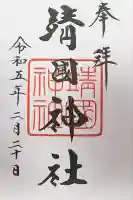 奉拝
靖國神社
靖国神社
令和五年二月二十日